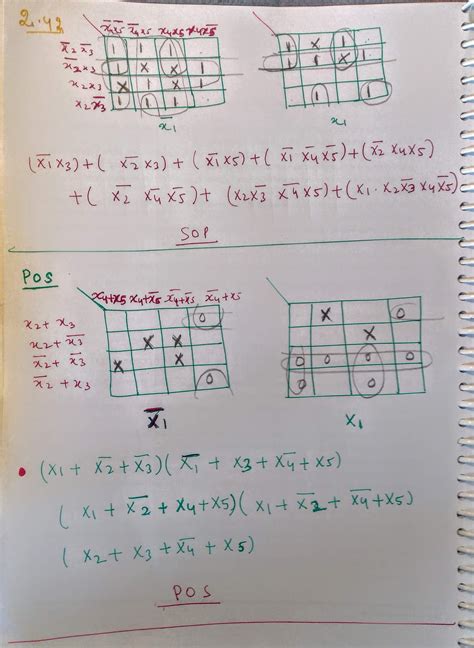 2.42
x̄4x̄5 x̄4x5 x4x5 x4x̄5
x̄2 x̄3 1 1 1 1 x 1
x̄2x3 1 x x 1 1 1 x 1
x2x3 x 1 x 1
x2x̄3 1 1 1 1 1
x̄1 x1
(x̄1x3)+( x̄2x3) + (x̄1x5)+( x̄1 x̄4x̄5)+(x̄2 x4x5)
+( x̄2 x̄4 x̄5)+ (x2x̄3 x̄4x5)+(x1.x2x̄3x4x̄5)
SOP
POS
x4+x5 x4+x̄5 x̄4+x̄5 x̄4+x5
x2+ x3 0 x 0
x2+ x̄3 x x x
x̄2+ x̄3 x x 0 0 0 0
x̄2 + x3 0 0 0
x̄1 x1
(x1 + x̄2+x̄3)( x̄1 + x3 + x̄4 + x5)
( x1 + x̄2 + x4+x5)( x1 + x̄2 + x̄4+x5)
( x2 + x3 + x̄4 + x5)
POS